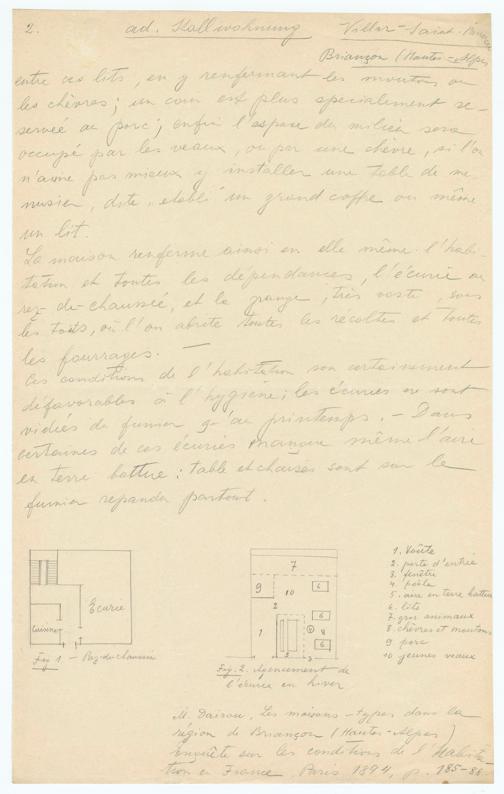 2. ad. Stallwohnung Villar-Saint-Pancrace
Briançon (Hautes-Alpes
entre ces lits, en y renfermant les moutons ou
les chèvres; un coin est plus specialement re-
servéé au porc; enfin l'espase du milieu sera
occupé par les veaux, ou par une chèvre, si l'on
n'aime pas mieux y installer une table de me-
nusier, dite "etabli" un grand coffre ou même
un lit.
La maison renferme ainsi en elle même l'habi-
tation et toutes les dépendances, l'écurie au
rez-de-chaussée, et la grange, très vaste, sous
les toits, où l'on abrite toutes les récoltes et toutes
les fourrages. —
Ces conditions de l'habitation son certainement
défavorables à l'hygiène; les écuries ne sont
vidiés du fumier qu'au printemps. — Dans
certaines de ces écuries manque même l'aire
en terre battue: table et chaises sont sur le
fumier repandu partout.
Cuisine
Écurie
Fig 1 — Rez-de-chaussée
7
9
10
6
2
6
1
8
6
2
3
Fig. 2. Agencement de
l'écurie en hiver
1. Voûte
2. porte d'entrée
3. fenêtre
4. poêle
5. aire en terre battue
6. lits
7. gros animaux
8. chèvres et moutons
9 porc
10 jeunes veaux
M. Dairou, Les maisons-types dans la
région de Briançon (Hautes-Alpes)
Enquête sur les conditions de l'habita-
tion en France. Paris 1894, p. 185-88